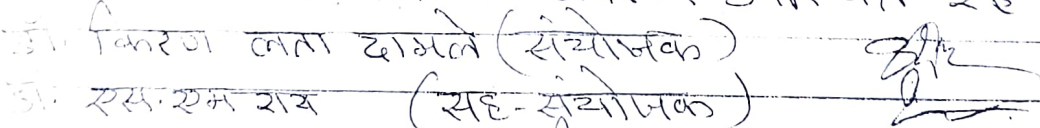 डॉ. किरण लता दामले (संयोजक)
डॉ. एस. एम राय (सह-संयोजक)